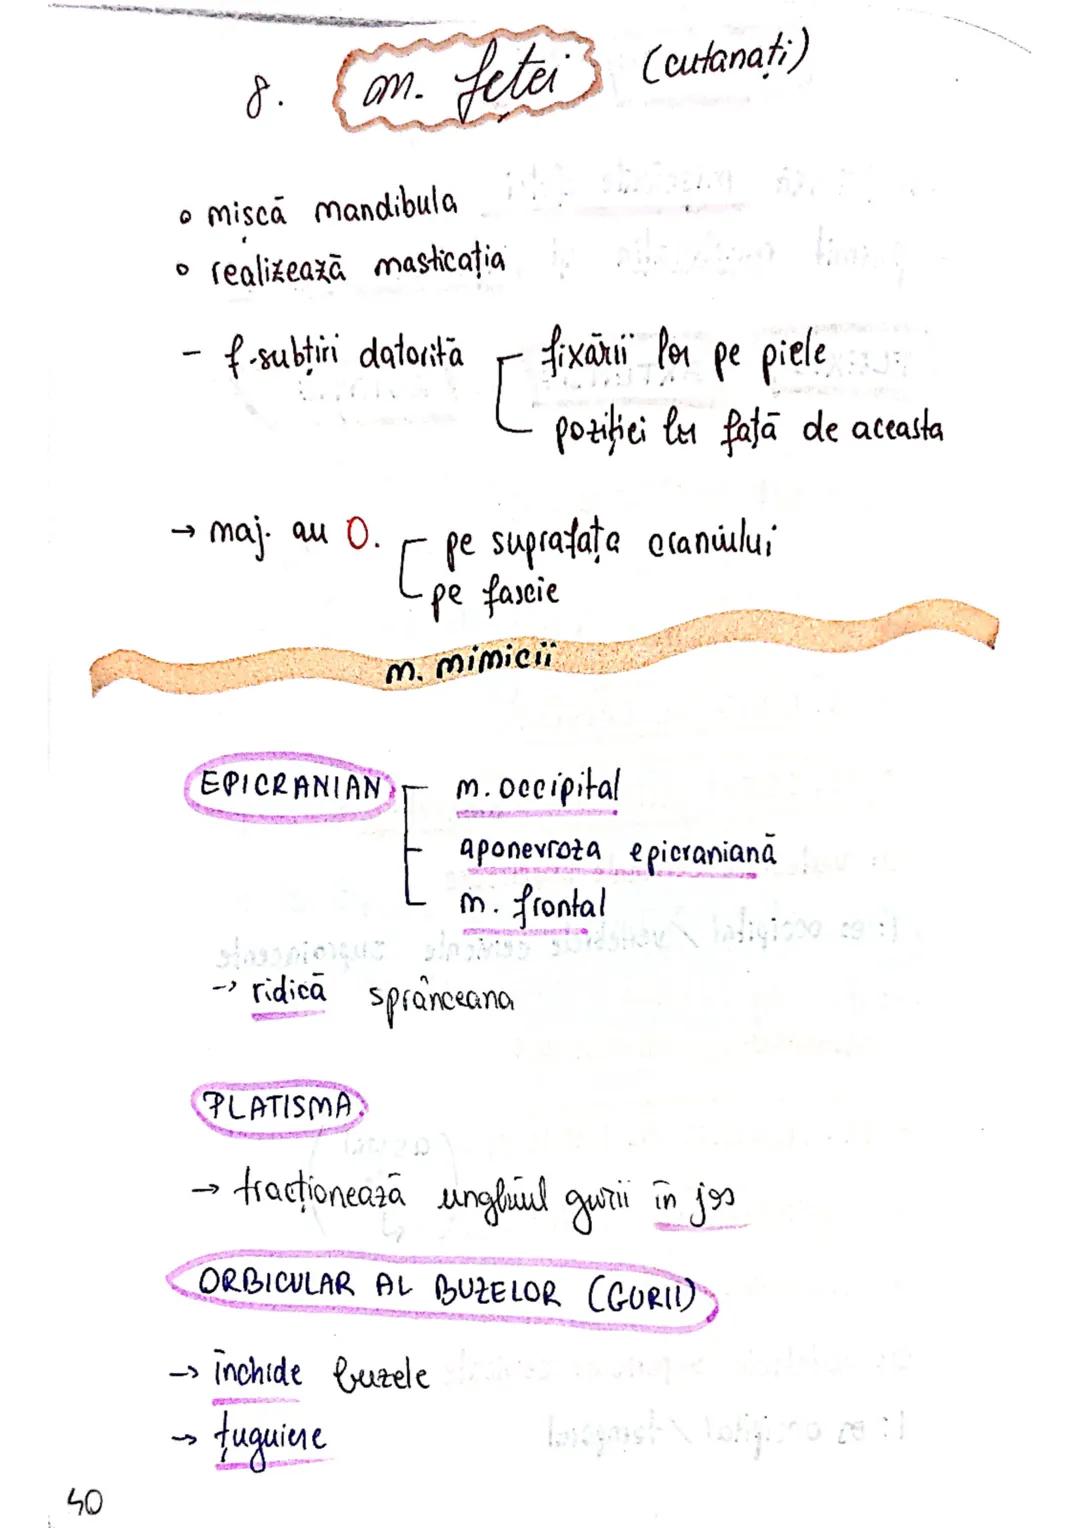 8. m. feței (cutanați)
• mișcă mandibula
• realizează masticația
- f. subțiri datorită fixării lor pe piele
poziției lor față de aceasta
→ maj. au O. pe suprafața craniului
pe fascie
m. mimicii
EPICRANIAN m. occipital
aponevroza epicraniană
m. frontal
→ ridică sprânceana
PLATISMA
→ tracționează unghiul gurii în jos
ORBICULAR AL BUZELOR (GURII)
→ închide buzele
→ țuguiere
40